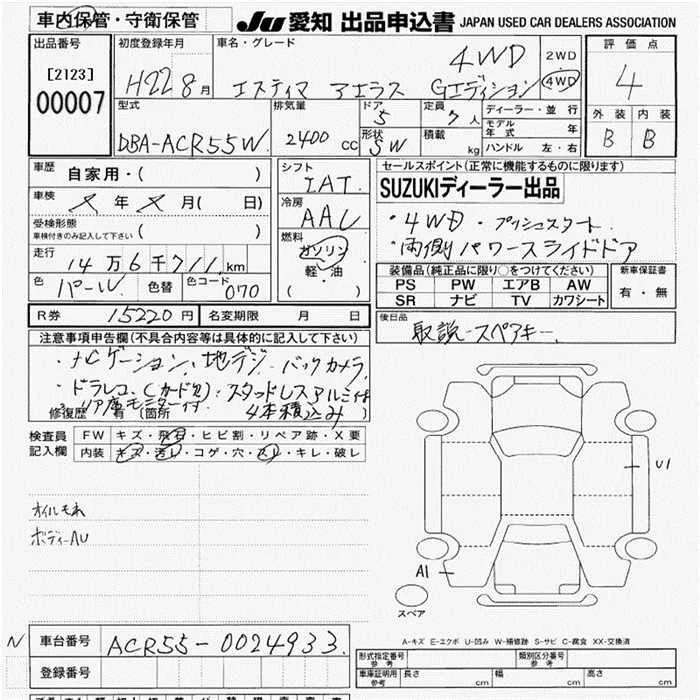 車内保管・守衛保管
JU 愛知 出品申込書 JAPAN USED CAR DEALERS ASSOCIATION
出品番号
[2123]
00007
初度登録年月
H22 8月
車名・グレード
4WD
エスティマ アエラス Gエディション
2WD
4WD
評価点
4
外装 内装
B B
型式
DBA-ACR55W
排気量
2400 cc
ドア
5
形状
SW
定員
7人
積載
kg
ディーラー・並行
モデル年式 年
ハンドル 左・右
車歴 自家用・( )
車検 メ 年 メ 月( 日)
受検形態
車検付きのみ記入して下さい ( )
走行 14万6千711km
色 パール 色替 色コード 070
シフト
IAT
冷房
AAC
燃料
ガソリン
軽・油
( )
セールスポイント(正常に機能するものに限ります)
SUZUKIディーラー出品
・4WD・プッシュスタート
・両側パワースライドドア
装備品(純正品に限り○をつけてください)
PS PW エアB AW
SR ナビ TV カワシート
新車保証書
有・無
R券 15220円 名変期限 月 日
後日品
取説-スペアキー
注意事項申告欄(不具合内容等は具体的に記入して下さい)
・ナビゲーション、地デジ・バックカメラ
・ドラレコ(カード欠)・スタッドレスアルミ付
リア席モニター付
4本積込み)
修復歴 有(箇所
検査員記入欄
FW キズ・飛石・ヒビ割・リペア跡・X要
内装 キズ・汚レ・コゲ・穴・スレ・キレ・破レ
オイルモレ
ボディーAU
U1
A1
スペア
A-キズ E-エクボ U-凹み W-補修跡 S-サビ C-腐食 XX-交換済
N
車台番号 ACR55-0024933
登録番号
形式指定番号 参考
類別区分番号 参考
車庫証明用 参考 長さ cm 幅 cm 高さ cm